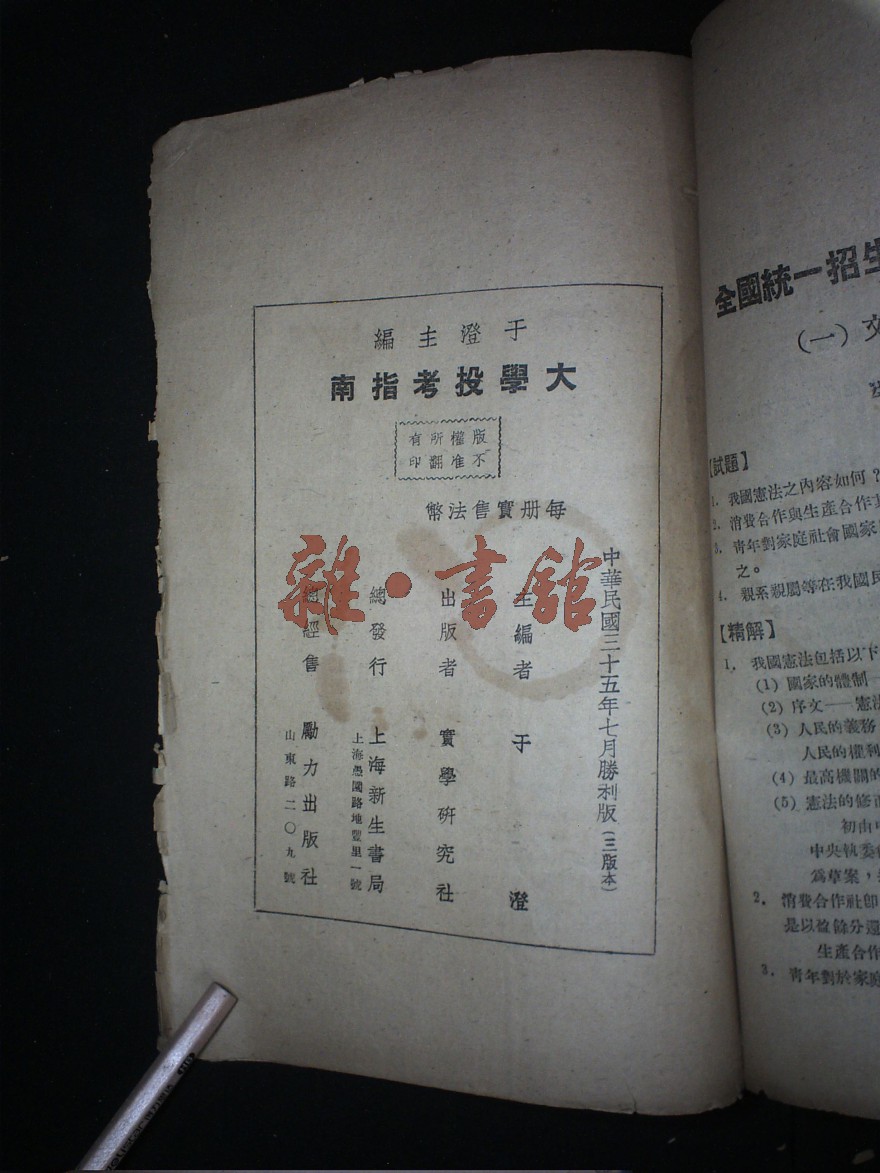 于澄主編
大學投考指南
版權所有
不准翻印
每册實售法幣
中華民國三十五年七月勝利版（三版本）
主編者 于澄
出版者 實學研究社
總發行 上海新生書局
上海愚園路地豐里一號
總經售 勵力出版社
山東路二〇九號
雜·書館
全國統一招生
（一）文
【試題】
1. 我國憲法之內容如何？
2. 消費合作與生產合作
3. 靑年對家庭社會國家
之。
4. 親系親屬等在我國民
【精解】
1. 我國憲法包括以下
(1) 國家的體制—
(2) 序文——憲法
(3) 人民的義務
人民的權利
(4) 最高機關的
(5) 憲法的修
初由中
中央執委
爲草案，
2. 消費合作社卽
是以盈餘分還
生產合作
3. 靑年對於家庭